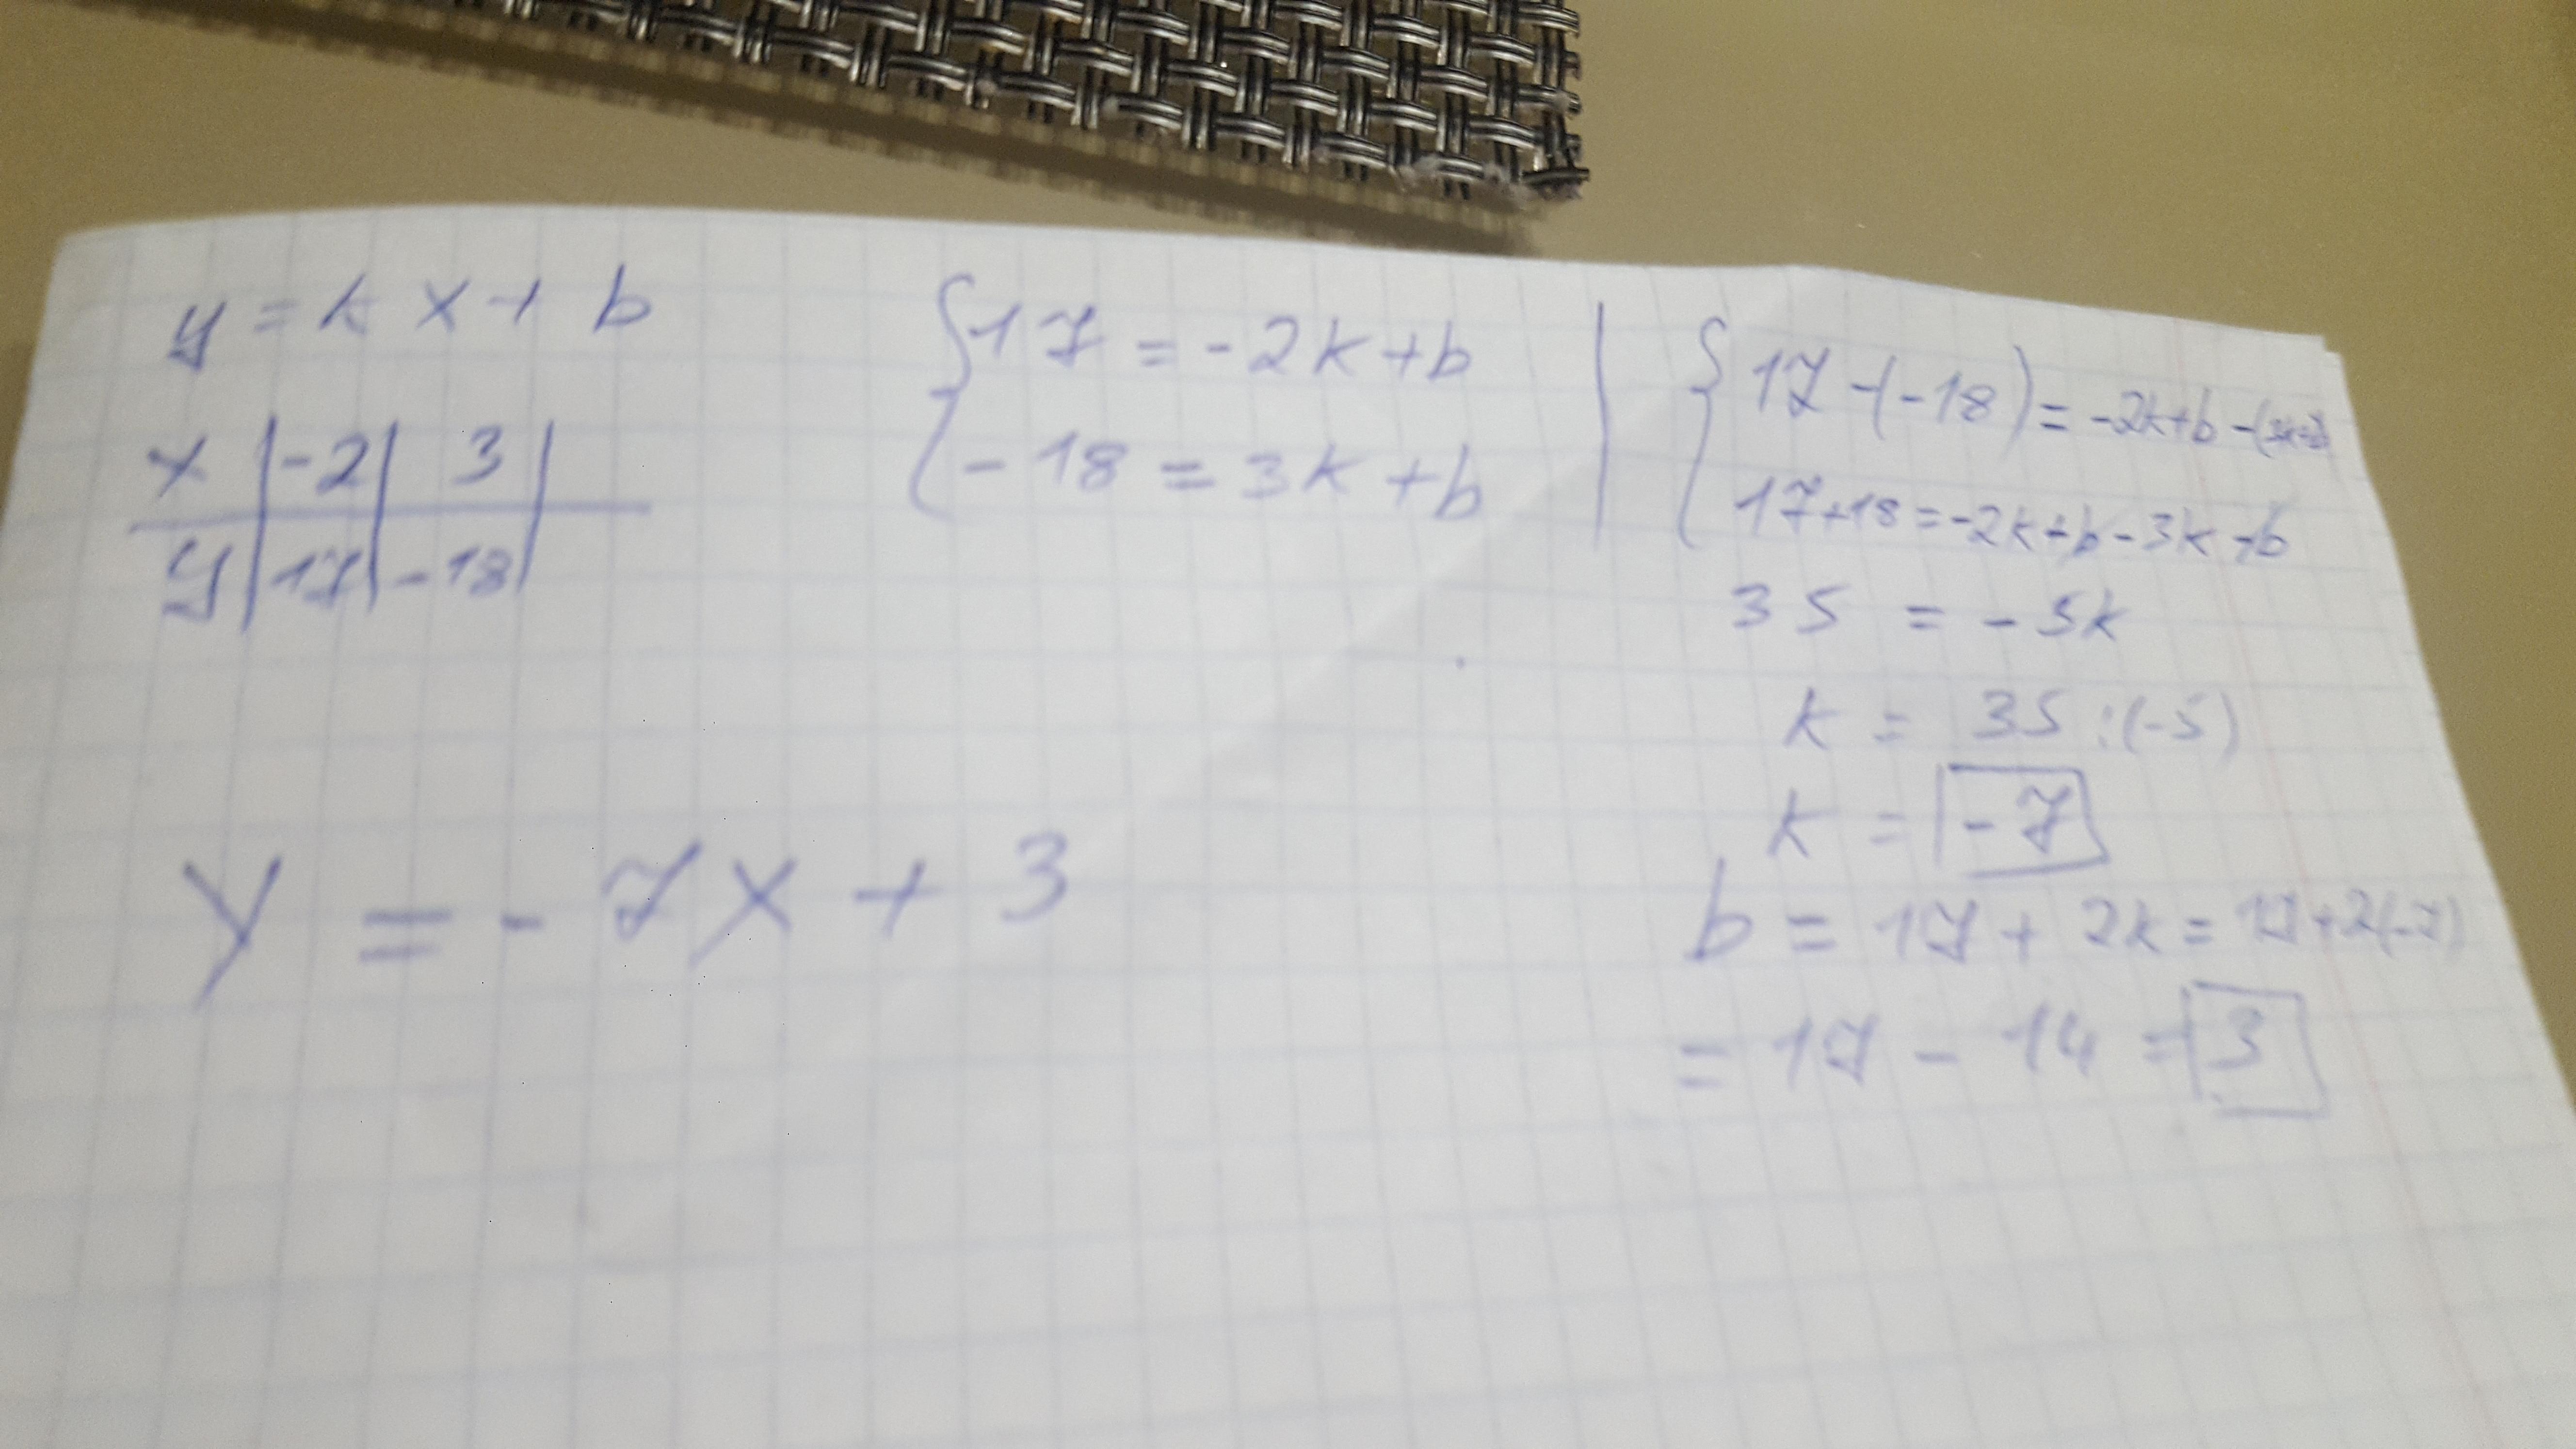 y = kx + b
x | -2 | 3 |
y | 17 | -18 |
{ 17 = -2k+b
-18 = 3k+b
{ 17-(-18) = -2k+b-(3k+b)
17+18=-2k+b-3k-b
35 = -5k
k = 35 :(-5)
k = -7
b = 17 + 2k = 17+2(-7)
= 17 - 14 = 3
y = -7x + 3